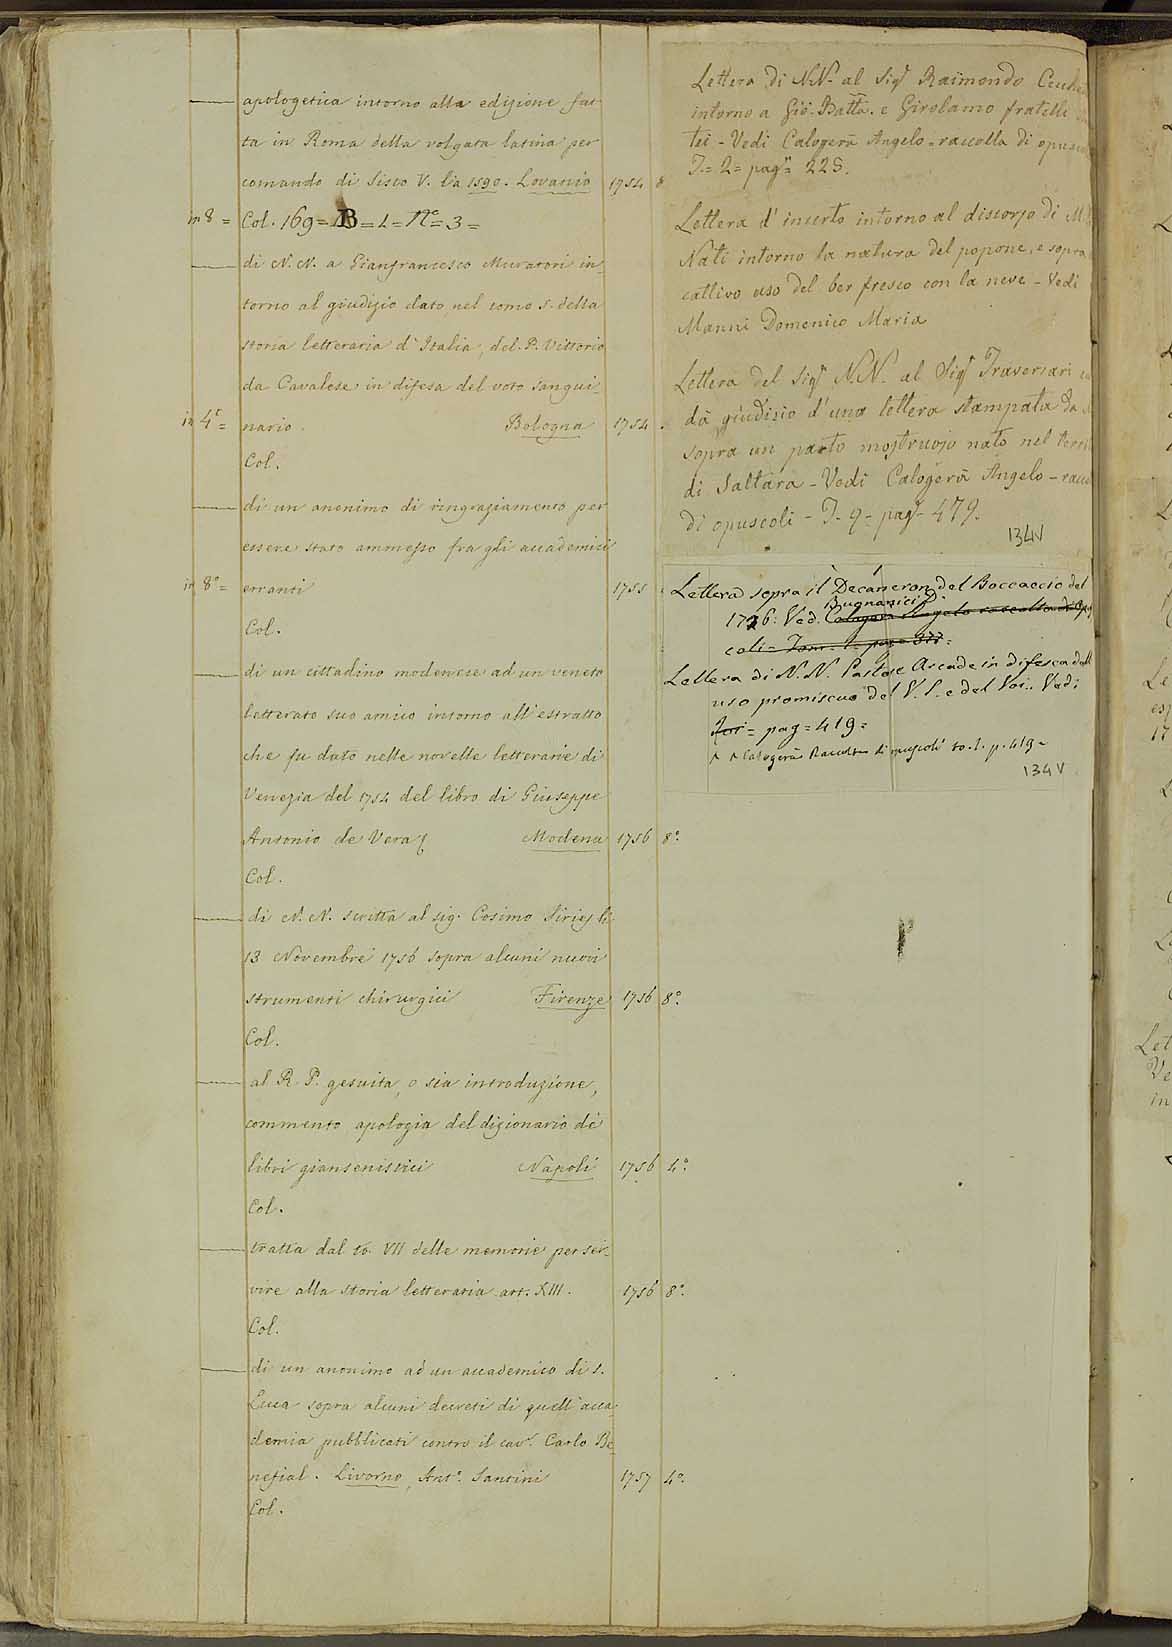 apologetica intorno alla edizione fat-
ta in Roma della volgata latina per
comando di Sisto V. l'a 1590. Lovanio 1754 8
in 8 = Col. 169 = B = L = N.º = 3 =
di N. N. a Gianfrancesco Muratori in-
torno al giudizio dato nel tomo 5. della
storia letteraria d'Italia, del P. Vittorio
da Cavalese in difesa del voto sangui-
in 4º = nario. Bologna 1754
Col.
di un anonimo di ringraziamento per
essere stato ammesso fra gli accademici
in 8º = erranti 1755
Col.
di un cittadino modenese ad un veneto
letterato suo amico intorno all'estratto
che fu dato nelle novelle letterarie di
Venezia del 1754 del libro di Giuseppe
Antonio de Veraz Modena 1756 8º.
Col.
di N. N. scritta al sig. Cosimo Siries li
13 Novembre 1756 sopra alcuni nuovi
strumenti chirurgici Firenze 1756 8º.
Col.
al R. P. gesuita, o sia introduzione,
commento apologia del dizionario de'
libri giansenistici Napoli 1756 4º.
Col.
tratta dal to. VII delle memorie per ser-
vire alla storia letteraria art. XIII. 1756 8º.
Col.
di un anonimo ad un accademico di S.
Luca sopra alcuni decreti di quell'acca-
demia pubblicati contro il cavr. Carlo Be-
nefial. Livorno, Antº. Santini 1757 4º.
Col.
Lettera di N.N. al Sigr Raimondo
intorno a Gio. Batta. e Girolamo fratelli
tei - Vedi Calogerà Angelo - raccolta di
T. = 2 = pagª = 225.
Lettera d'incerto intorno al discorso di
Nati intorno la natura del popone, e sopra
cattivo uso del ber fresco con la neve - Vedi
Manni Domenico Maria
Lettera del Sigr N.N. al Sigr Traversari
dà giudizio d'una lettera stampata da
sopra un parto mostruoso nato nel
di Saltara - Vedi Calogerà Angelo -
di opuscoli - T. 9 - pagª 479.
134V
Lettera sopra il Decameron del Boccaccio del
Bugnanici
1726: Ved. Calogerà Angelo raccolta di
coli = Tom. 1. pag. 311 =
Lettera di N. N. Pastore Arcade in difesa dell
uso promiscuo del V. S. e del Voi.. Vedi
Ivi = pag = 419 =
Calogerà Raccolta di opuscoli to. 1. p. 419 =
134 V